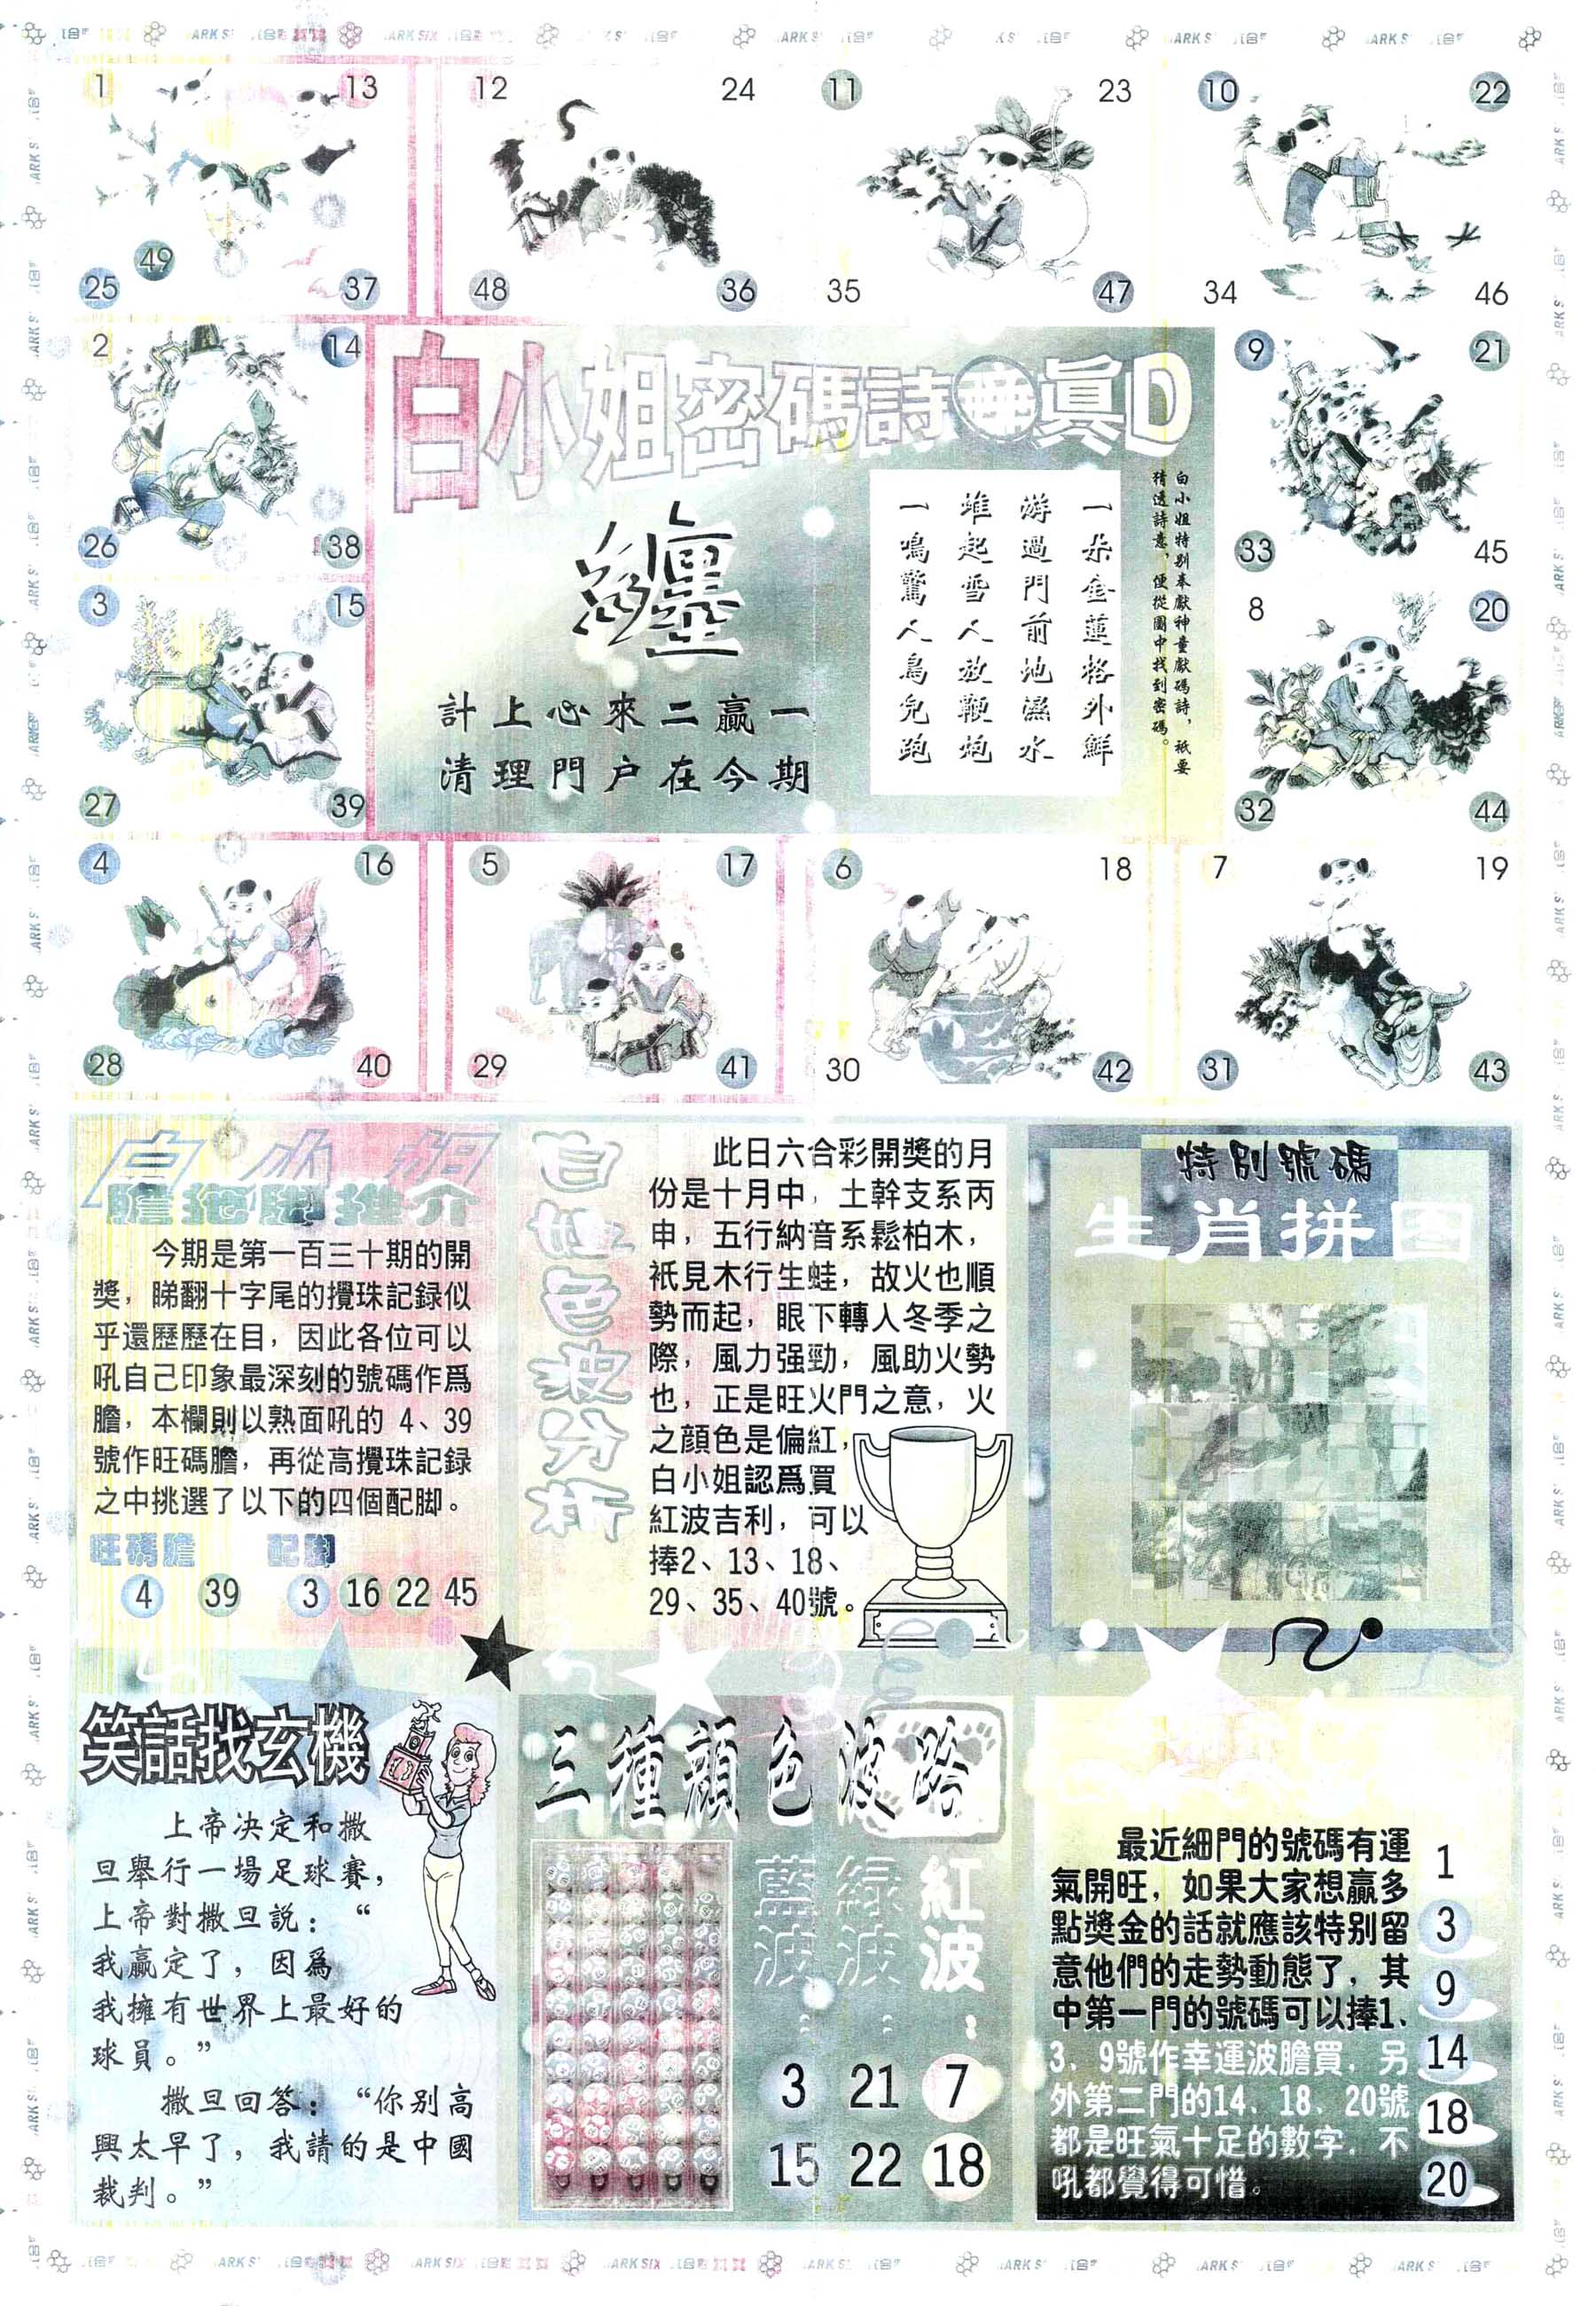 1
13
25
49
37
12
24
48
36
11
23
35
47
10
22
34
46
2
14
26
38
白小姐密碼詩
眞D
纏
計上心來二贏一
清理門户在今期
白小姐特别奉獻神童獻碼詩，祇要
猜透詩意，便從圖中找到密碼。
一朵金蓮格外鮮
游過門前地濕水
堆起雪人放鞭炮
一鳴驚人鳥兒跑
9
21
33
45
3
15
27
39
8
20
32
44
4
16
28
40
5
17
29
41
6
18
30
42
7
19
31
43
白小姐
膽拖脚推介
今期是第一百三十期的開
獎，睇翻十字尾的攪珠記録似
乎還歷歷在目，因此各位可以
吼自己印象最深刻的號碼作爲
膽，本欄則以熟面吼的 4、39
號作旺碼膽，再從高攪珠記録
之中挑選了以下的四個配脚。
旺碼膽 配脚
4 39 3 16 22 45
白姐色波分析
此日六合彩開獎的月
份是十月中，土幹支系丙
申，五行納音系鬆柏木，
祇見木行生蛙，故火也順
勢而起，眼下轉人冬季之
際，風力强勁，風助火勢
也，正是旺火門之意，火
之顔色是偏紅，
白小姐認爲買
紅波吉利，可以
捧2、13、18、
29、35、40號。
特别號碼
生肖拼圖
笑話找玄機
上帝决定和撒
旦舉行一場足球賽，
上帝對撒旦説：“
我贏定了，因爲
我擁有世界上最好的
球員。”
撒旦回答：“你别高
興太早了，我請的是中國
裁判。”
三種顔色波路
藍波：
3
15
緑波：
21
22
紅波：
7
18
最近細門的號碼有運
氣開旺，如果大家想贏多
點獎金的話就應該特别留
意他們的走勢動態了，其
中第一門的號碼可以捧1、
3、9號作幸運波膽買，另
外第二門的14、18、20號
都是旺氣十足的數字，不
吼都覺得可惜。
1
3
9
14
18
20